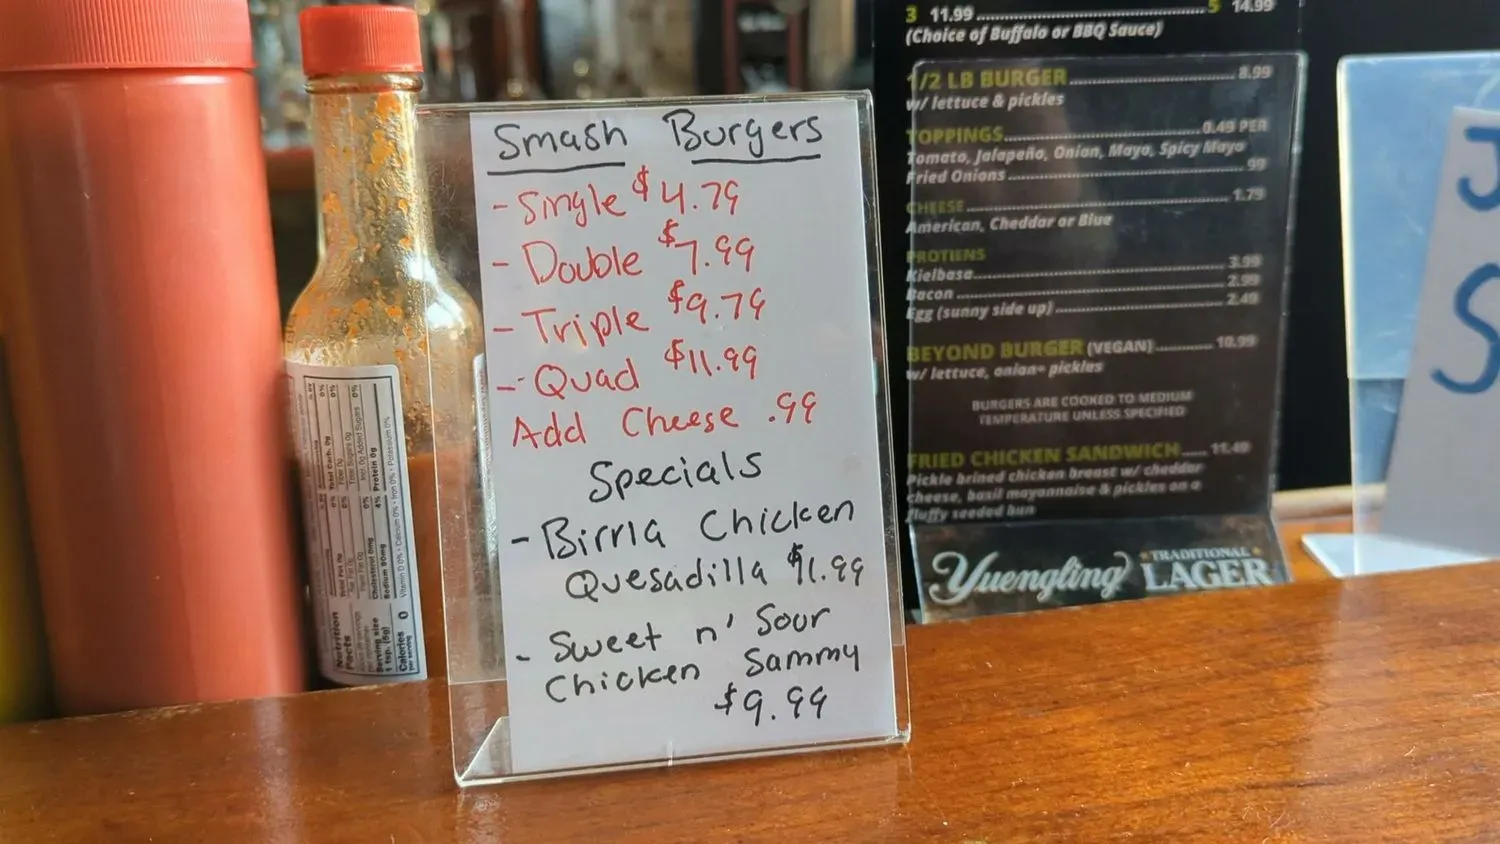 Smash Burgers
- Single $4.79
- Double $7.99
- Triple $9.79
- Quad $11.99
Add Cheese .99
Specials
- Birria Chicken
Quesadilla $11.99
- Sweet n' Sour
Chicken Sammy
$9.99
3 11.99 5 14.99
(Choice of Buffalo or BBQ Sauce)
1/2 LB BURGER 8.99
w/ lettuce & pickles
TOPPINGS 0.49 PER
Tomato, Jalapeño, Onion, Mayo, Spicy Mayo
Fried Onions 99
CHEESE 1.79
American, Cheddar or Blue
PROTIENS
Kielbasa 3.99
Bacon 2.99
Egg (sunny side up) 2.49
BEYOND BURGER (VEGAN) 10.99
w/ lettuce, onion+ pickles
BURGERS ARE COOKED TO MEDIUM
TEMPERATURE UNLESS SPECIFIED
FRIED CHICKEN SANDWICH 11.49
Pickle brined chicken breast w/ cheddar
cheese, basil mayonnaise & pickles on a
fluffy seeded bun
Yuengling TRADITIONAL
LAGER
J
S
Nutrition
Facts
Serving size
1 tsp. (5g)
Calories 0
per serving
Total Fat 0g 0%
Cholesterol 0mg 0%
Sodium 90mg 4%
Total Carb. 0g 0%
Protein 0g
Vitamin D 0% • Calcium 0% • Iron 0% • Potassium 0%